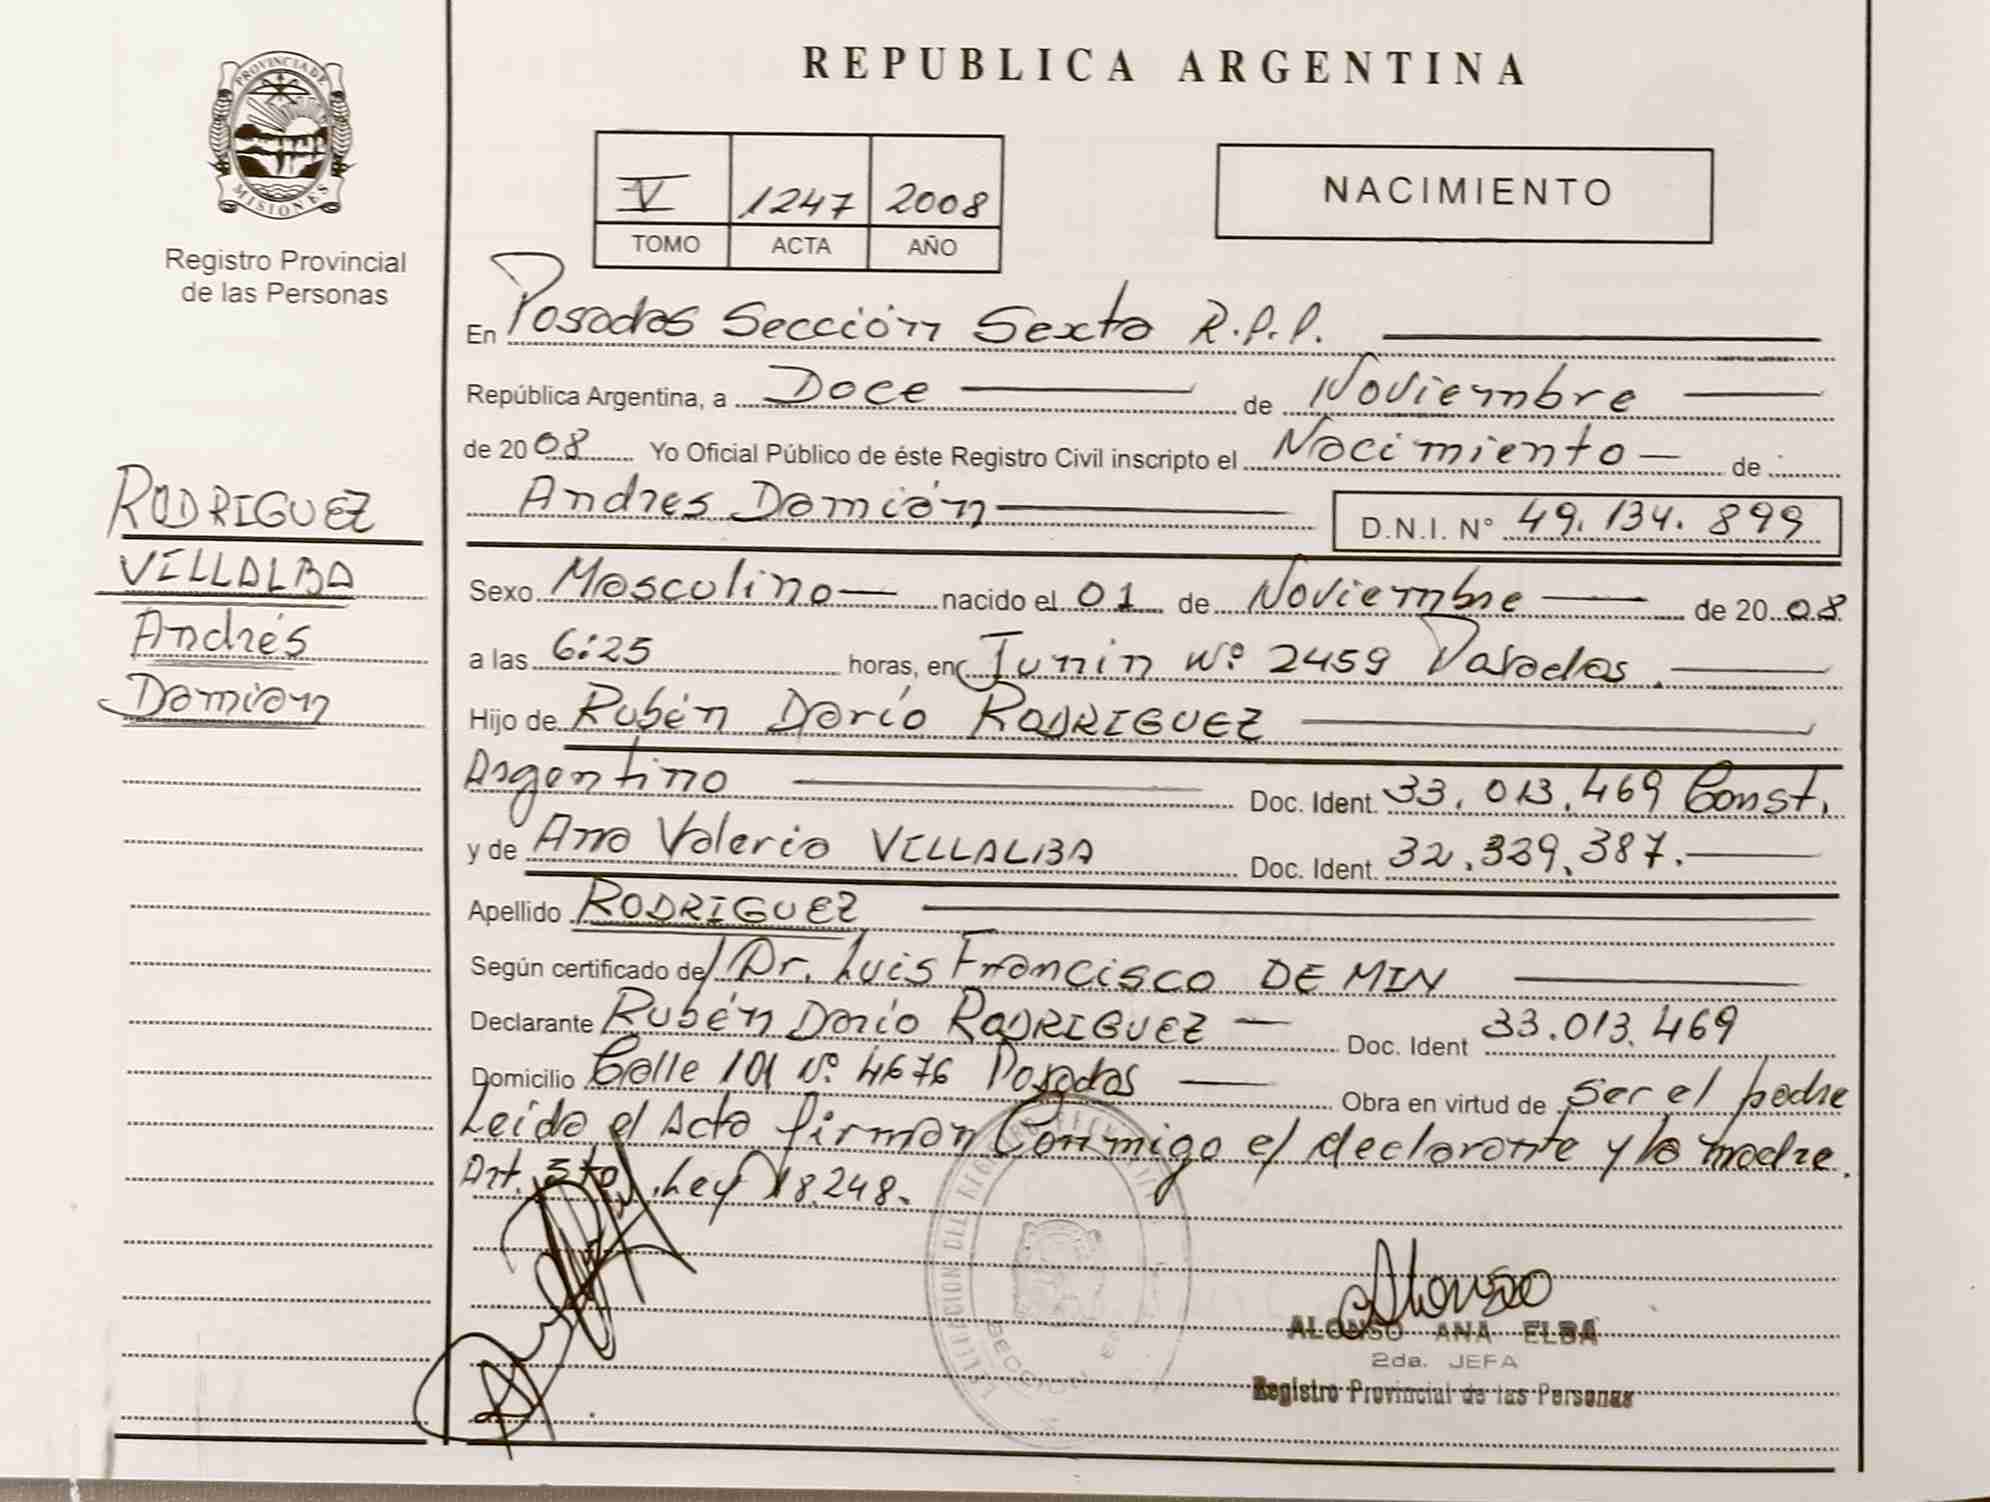 PROVINCIA DE
MISIONES
Registro Provincial
de las Personas
RODRIGUEZ
VILLALBA
Andrés
Damián
REPUBLICA ARGENTINA
V 1247 2008
TOMO ACTA AÑO
NACIMIENTO
En Posadas Sección Sexta R.P.P.
República Argentina, a Doce de Noviembre
de 2008 Yo Oficial Público de éste Registro Civil inscripto el Nacimiento de
Andres Damián D.N.I. N° 49.134.899
Sexo Masculino nacido el 01 de Noviembre de 2008
a las 6:25 horas, en Junin Nº 2459 Posadas.
Hijo de Rubén Darío RODRIGUEZ
Argentino Doc. Ident. 33.013.469 Const.
y de Ana Valeria VILLALBA Doc. Ident. 32.339.387.
Apellido RODRIGUEZ
Según certificado de/ Dr. Luis Francisco DE MIN
Declarante Rubén Darío RODRIGUEZ Doc. Ident 33.013.469
Domicilio Calle 101 Nº 4676 Posadas Obra en virtud de ser el padre
Leida el Acta firman Conmigo el declarante y la madre.
Art. 5to. Ley 18.248.
Alonso
ALONSO ANA ELBA
2da. JEFA
Registro Provincial de las Personas